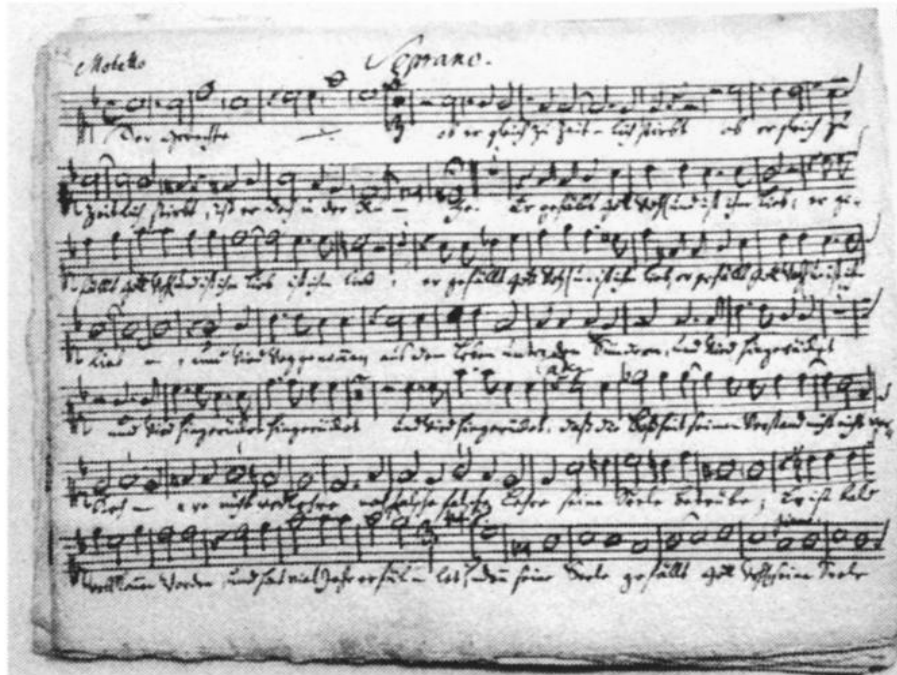 Motetto Soprano.
Der Gerechte ob er gleich zu zeit - lich stirbt ob er gleich zu
zeitlich stirbt, ist er doch in der Ru - he. Er gefällt Gott wohl und ist ihm lieb, er ge-
fällt Gott wohl und ist ihm lieb ist ihm lieb, er gefällt Gott wohl u. ist ihm lieb, er gefällt Gott wohl u. ist ihm
lieb, und wird weggenommen aus dem Leben unter den Sündern, und wird hingerücket
und wird hingerücket hingerücket und wird hingerücket, daß die Boßheit seinen Verstand nicht nicht ver-
nicht verkehre noch falsche falsche Lehre seine Seele betrübe; Er ist bald
vollkommen worden, und hat viel Jahr erfül - let, denn seine Seele gefällt Gott wohl seine Seele